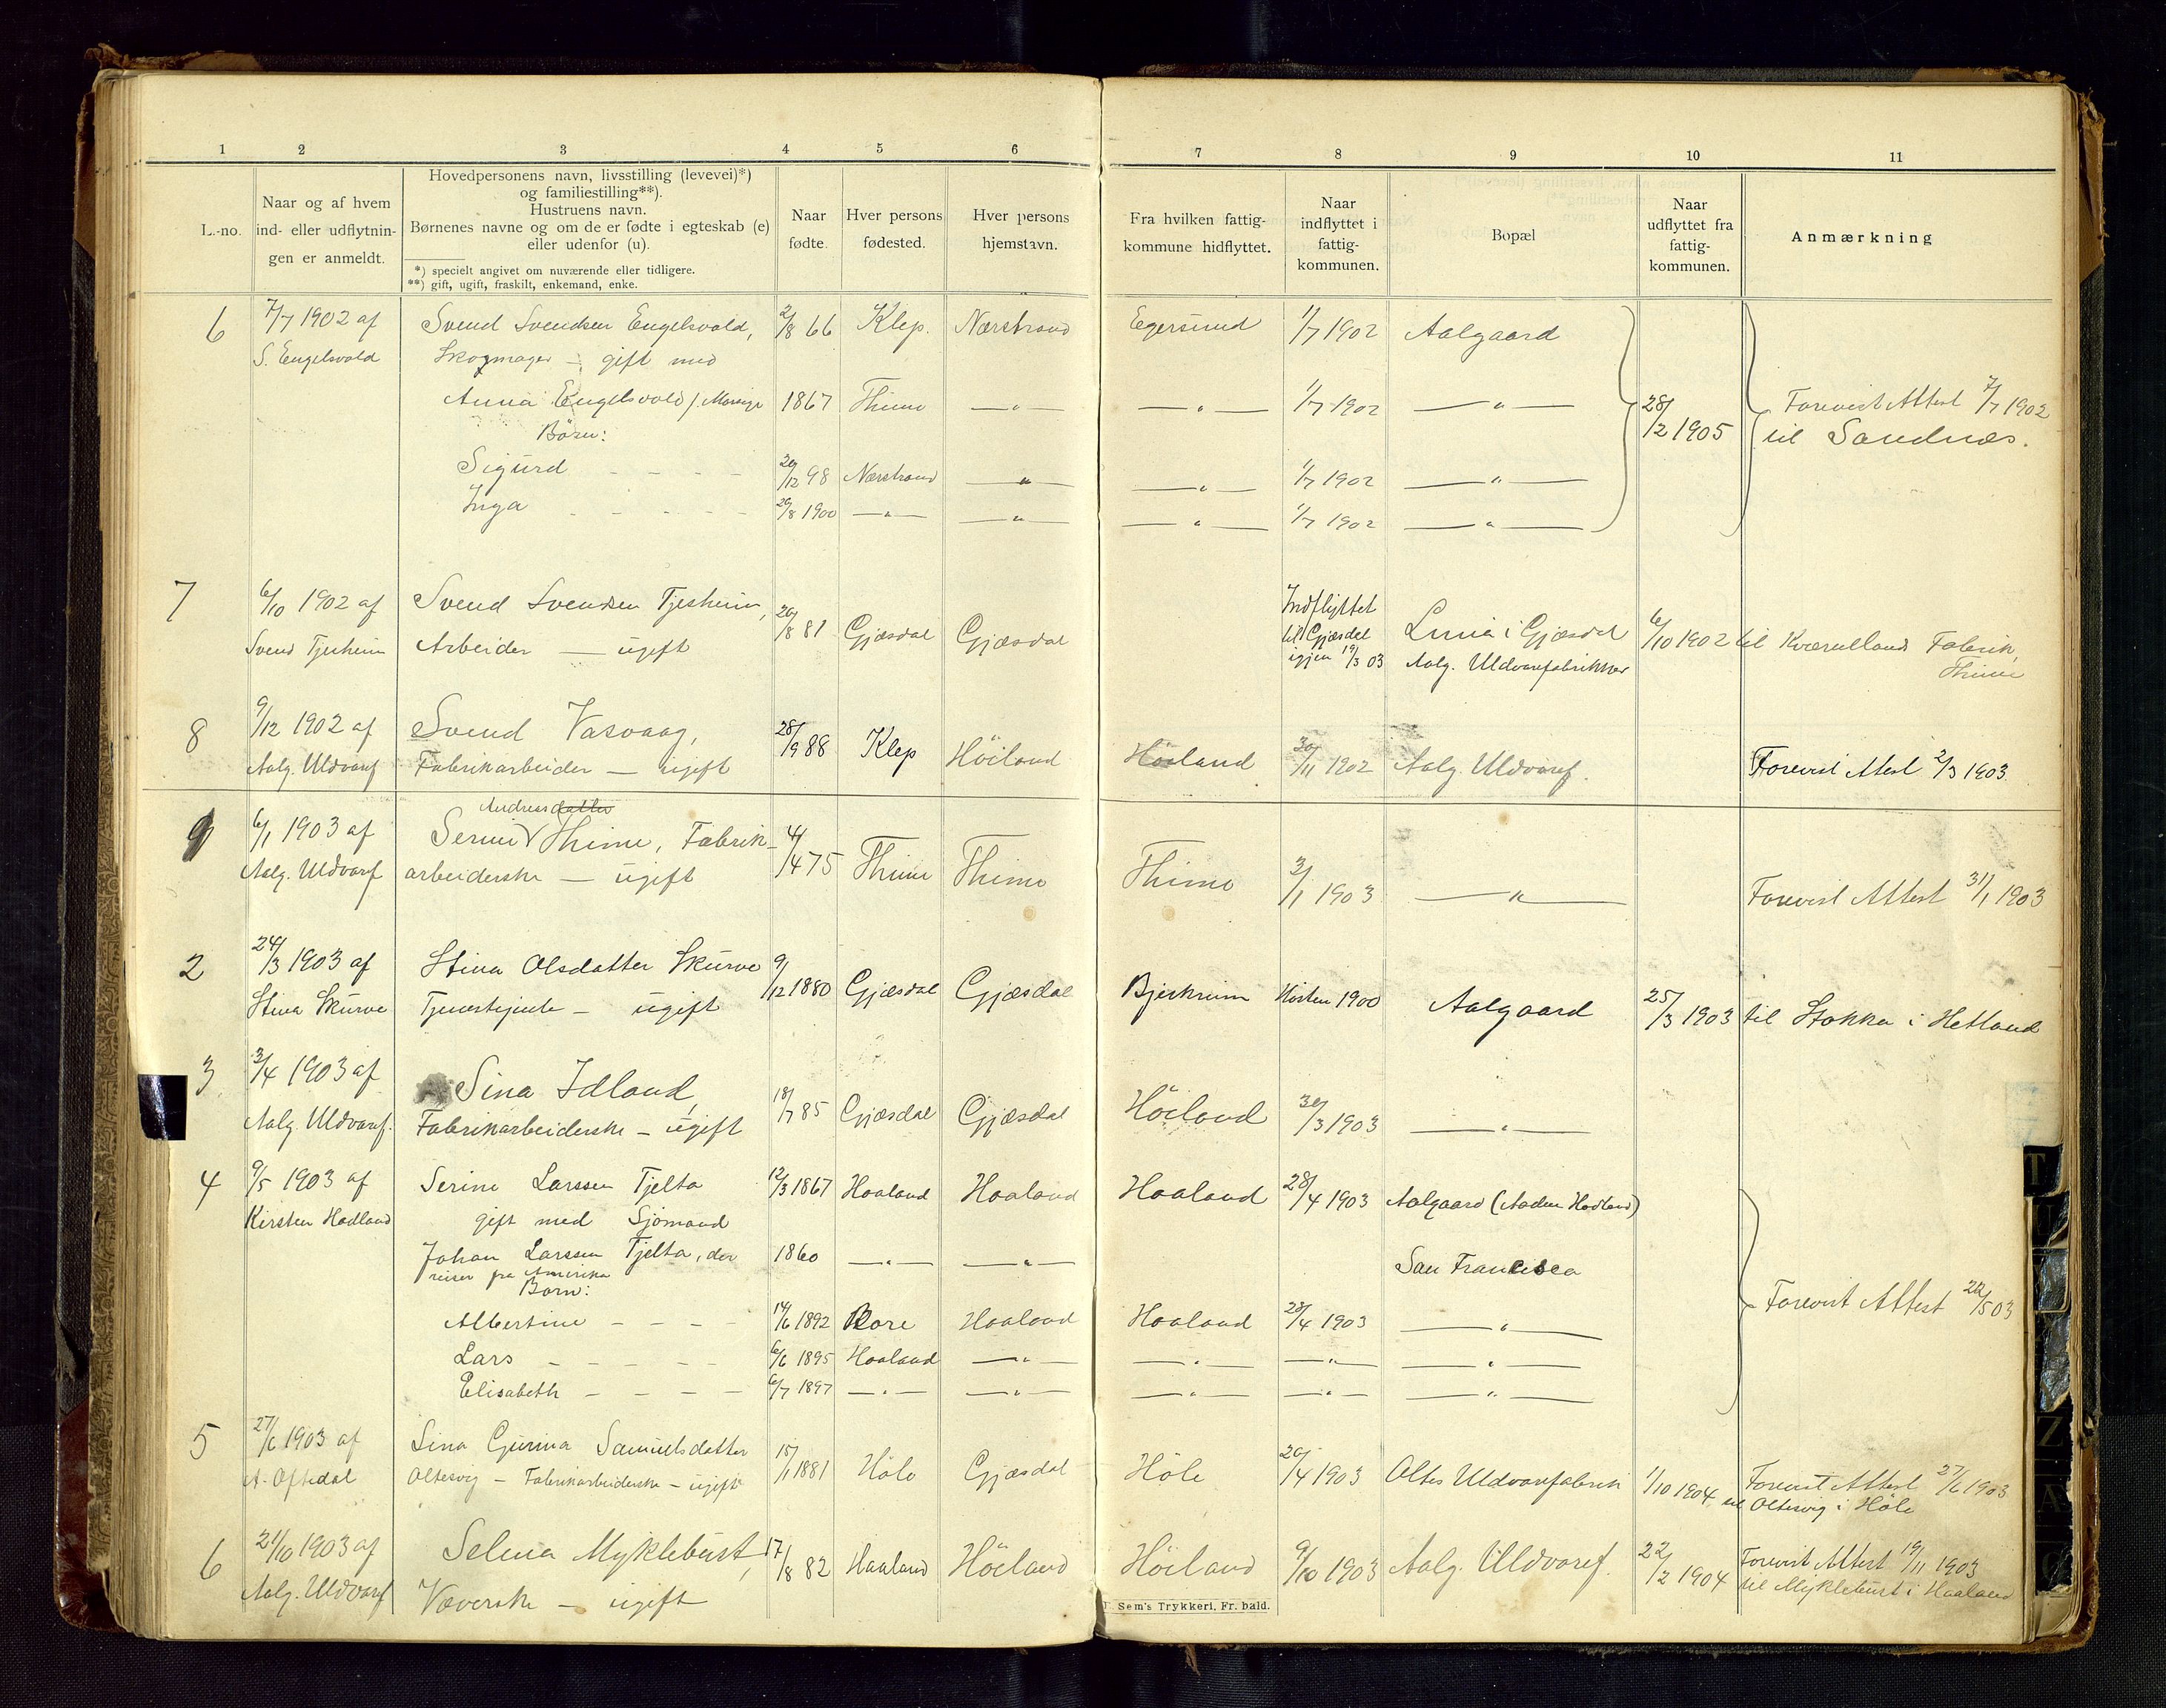 1 2 3 4 5 6 7 8 9 10 11
L.-no.
Naar og af hvem
ind- eller udflytnin-
gen er anmeldt.
Hovedpersonens navn, livsstilling (levevei)*)
og familiestilling**).
Hustruens navn.
Børnenes navne og om de er fødte i egteskab (e)
eller udenfor (u).
*) specielt angivet om nuværende eller tidligere.
**) gift, ugift, fraskilt, enkemand, enke.
Naar
fødte.
Hver persons
fødested.
Hver persons
hjemstavn.
Fra hvilken fattig-
kommune hidflyttet.
Naar
indflyttet i
fattig-
kommunen.
Bopæl
Naar
udflyttet fra
fattig-
kommunen.
Anmærkning
6 7/7 1902 af Svend Svendsen Engelsvold, 2/8 66 Klep. Nærstrand Egersund 1/7 1902 Aalgaard
S. Engelsvold Skomager - gift med
Anna Engelsvold 1867 Thime —"— —"— 1/7 1902 —"— 28/2 1905 Forevist Attest 7/7 1902
Börn: til Sandnæs.
Sigurd - - - - 20/12 98 Nærstrand —"— —"— 1/7 1902 —"—
Inga - - - - 29/8 1900 —"— —"— —"— 1/7 1902 —"—
7 6/10 1902 af Svend Svendsen Tjesheim, 20/8 81 Gjæsdal Gjæsdal Indflyttet til Gjæsdal igjen 19/3 03 Limia i Gjæsdal 6/10 1902 til Kværnlands Fabrik,
Svend Tjesheim Arbeider — ugift Aalg. Uldvarefabrikker Thime
8 9/12 1902 af Svend Vasvaag, 28/9 88 Klep Höiland Höiland 30/11 1902 Aalg. Uldvaref. Forevist Attest 2/3 1903
Aalg. Uldvaref Fabrikarbeider — ugift
Andreasdatter
1 6/1 1903 af Serine Thime, Fabrik- 4/4 75 Thime Thime Thime 3/1 1903 —"— Forevist Attest 31/1 1903
Aalg. Uldvaref arbeiderske — ugift
2 24/3 1903 af Stina Olsdatter Skurve 9/12 1880 Gjæsdal Gjæsdal Bjerkreim Hösten 1900 Aalgaard 25/3 1903 til Stokka i Hetland
Stina Skurve Tjenestejente — ugift
3 3/4 1903 af Sina Idland, 18/7 85 Gjæsdal Gjæsdal Höiland 30/3 1903 —"—
Aalg. Uldvaref. Fabrikarbeiderske — ugift
4 9/5 1903 af Serine Larssen Tjelta 12/3 1867 Haaland Haaland Haaland 28/4 1903 Aalgaard (Aaden Hadland)
Kirsten Hadland gift med Sjömand
Johan Larssen Tjelta, der 1860 —"— —"— San Francisca
reiser paa Amerika
Börn: Forevist Attest 22/5 03
Albertine - - - 14/6 1892 Bore Haaland Haaland 28/4 1903 —"—
Lars - - - - 6/6 1895 Haaland —"— —"— —"— —"—
Elisabeth - - - - 6/7 1897 —"— —"— —"— —"— —"—
5 27/6 1903 af Sina Gurina Samuelsdatter 15/1 1881 Höle Gjæsdal Höle 20/4 1903 Oltes Uldvarefabrik 1/10 1904 Forevist Attest 27/6 1903
A. Oftedal Oltesvig — Fabrikarbeiderske — ugift til Oltesvig i Höle
6 21/10 1903 af Selma Myklebust, 17/8 82 Haaland Höiland Höiland 9/10 1903 Aalg. Uldvaref. 22/2 1904 Forevist Attest 19/11 1903
Aalg. Uldvaref Væverske — ugift til Myklebust i Haaland
Sem's Trykkeri, Fr. hald.